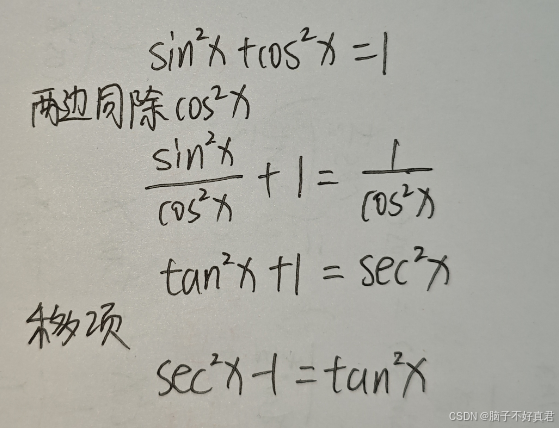 sin²x+cos²x=1
两边同除cos²x
sin²x/cos²x + 1 = 1/cos²x
tan²x+1=sec²x
移项
sec²x-1=tan²x
CSDN @脑子不好真君